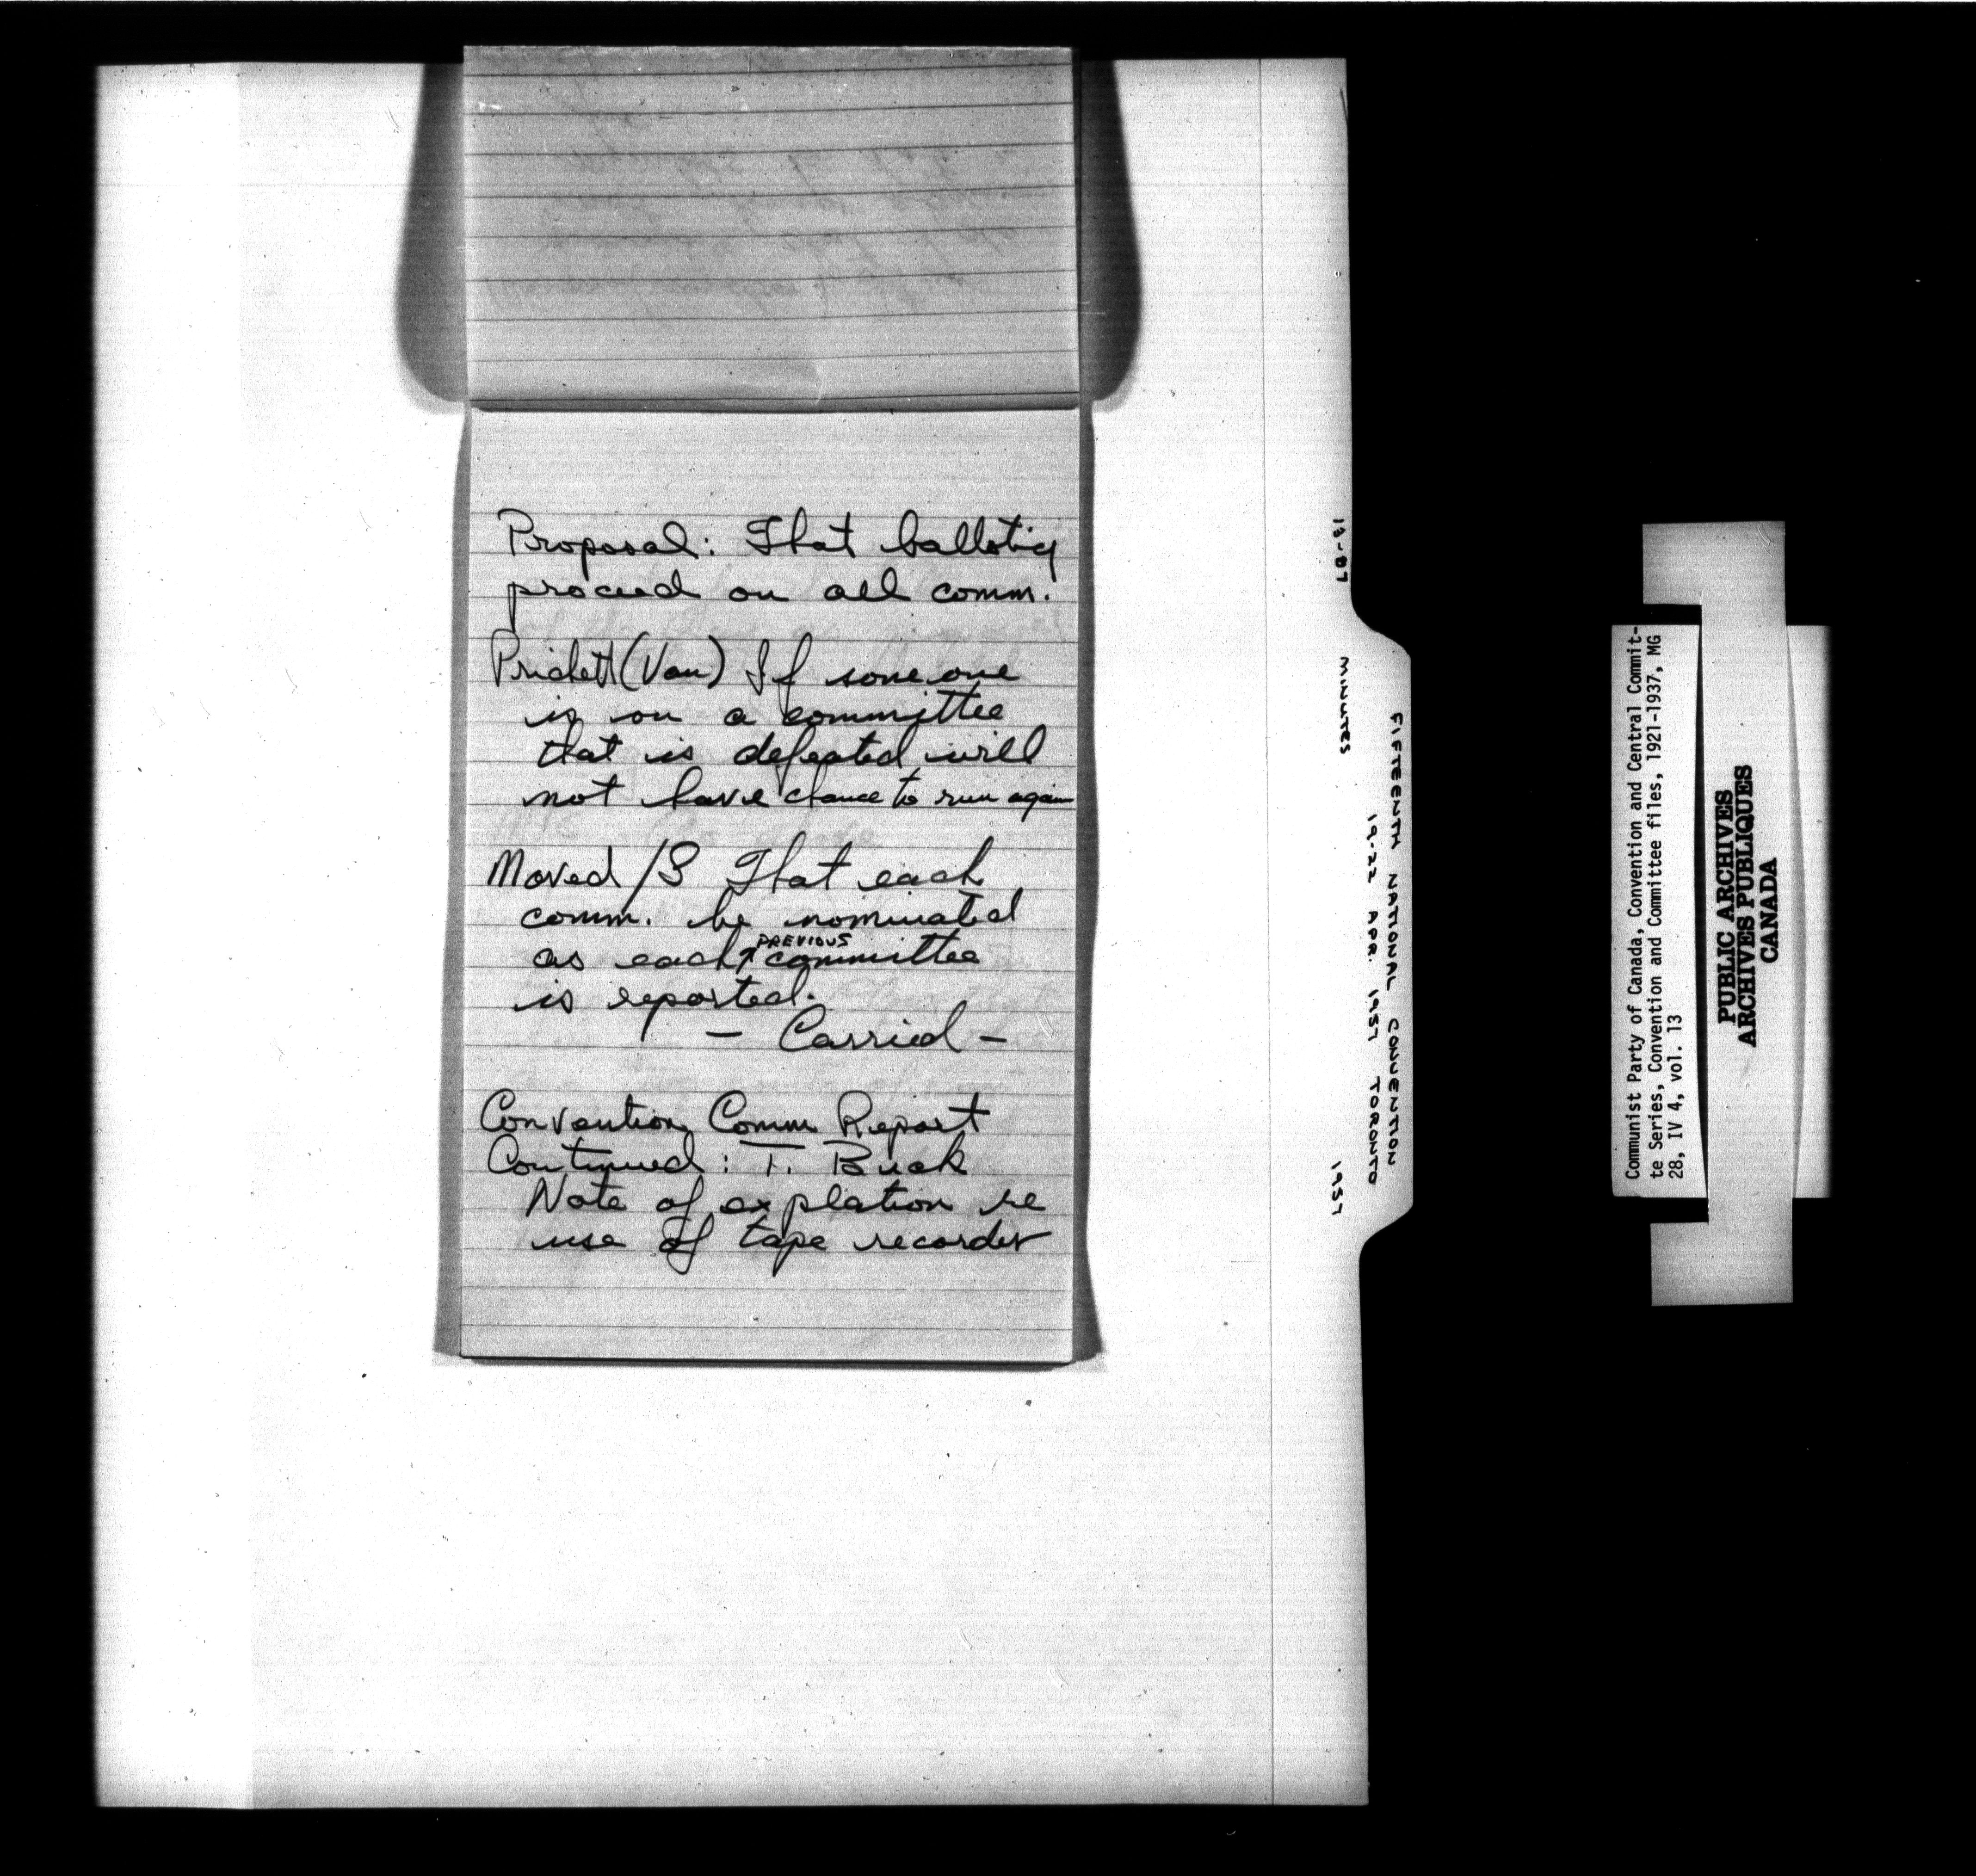 Proposal: That balloting
proceed on all comm.
Prickett (Van) If someone
is on a committee
that is defeated will
not have chance to run again
Moved /S That each
comm. be nominated
as each PREVIOUS committee
is reported.
- Carried -
Convention Comm Report
Continued: T. Buck
Note of explation re
use of tape recorder
13-07
MINUTES
1957
FIFTEENTH NATIONAL CONVENTION
19-22 APR. 1957 TORONTO
Communist Party of Canada, Convention and Central Commit-
te Series, Convention and Committee files, 1921-1937, MG
28, IV 4, vol. 13
PUBLIC ARCHIVES
ARCHIVES PUBLIQUES
CANADA